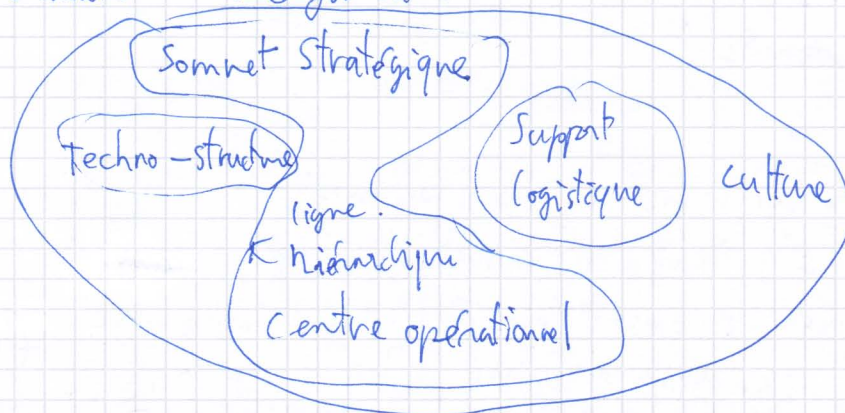 Sommet Stratégique
Techno-structure
Support
logistique
culture
ligne
hiérarchique
Centre opérationnel